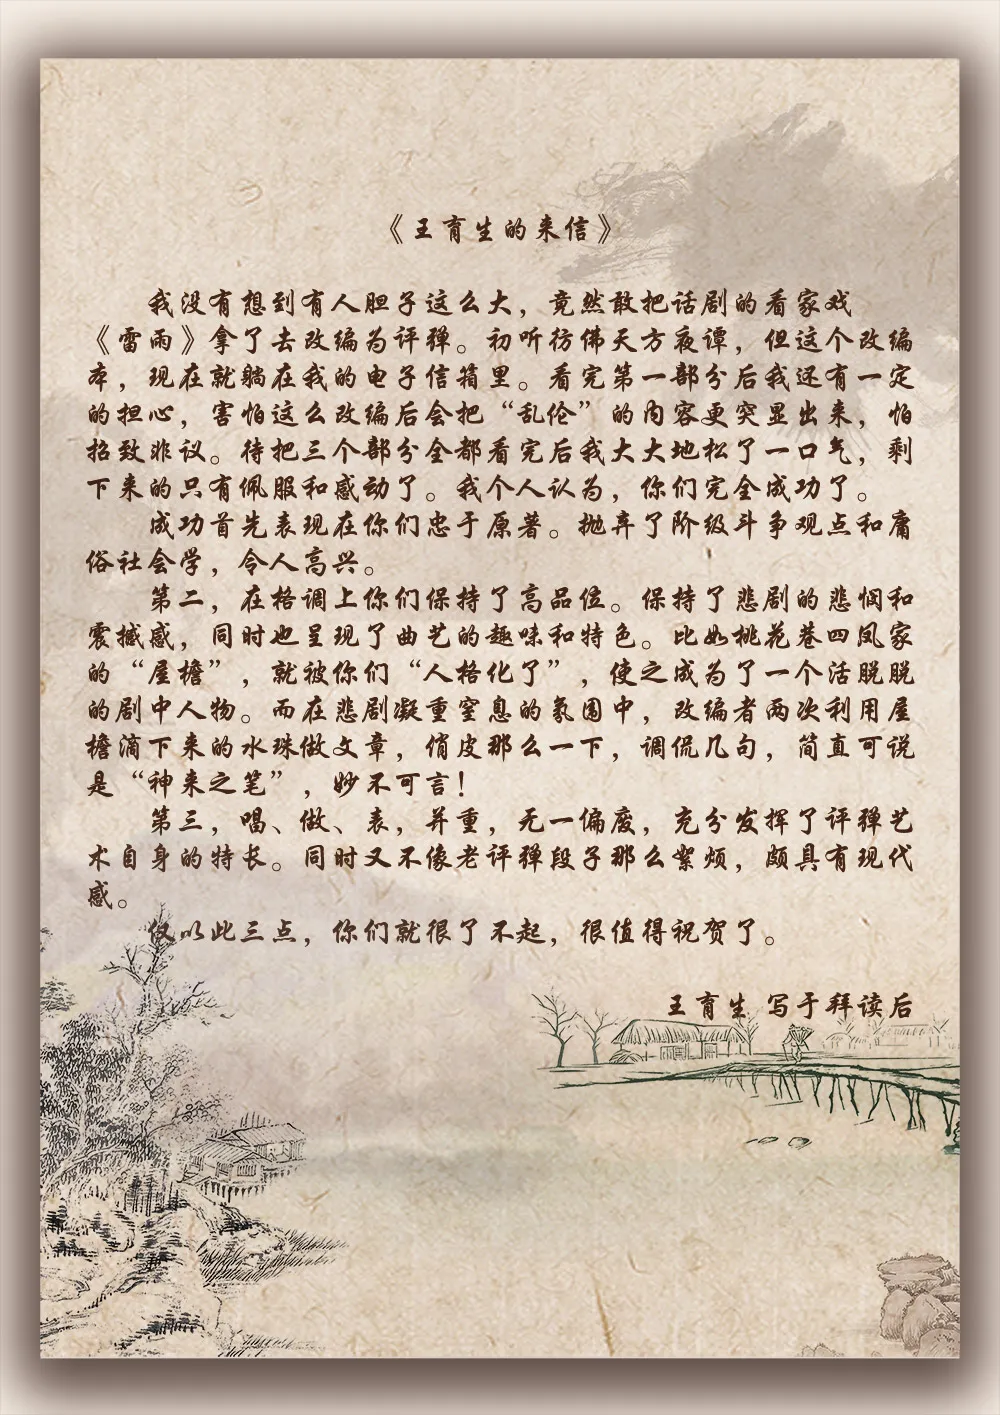 《王育生的来信》
我没有想到有人胆子这么大，竟然敢把话剧的看家戏
《雷雨》拿了去改编为评弹。初听彷佛天方夜谭，但这个改编
本，现在就躺在我的电子信箱里。看完第一部分后我还有一定
的担心，害怕这么改编后会把“乱伦”的内容更突显出来，怕
招致非议。待把三个部分全都看完后我大大地松了一口气，剩
下来的只有佩服和感动了。我个人认为，你们完全成功了。
成功首先表现在你们忠于原著。抛弃了阶级斗争观点和庸
俗社会学，令人高兴。
第二，在格调上你们保持了高品位。保持了悲剧的悲悯和
震撼感，同时也呈现了曲艺的趣味和特色。比如桃花巷四凤家
的“屋檐”，就被你们“人格化了”，使之成为了一个活脱脱
的剧中人物。而在悲剧凝重窒息的氛围中，改编者两次利用屋
檐滴下来的水珠做文章，俏皮那么一下，调侃几句，简直可说
是“神来之笔”，妙不可言！
第三，唱、做、表，并重，无一偏废，充分发挥了评弹艺
术自身的特长。同时又不像老评弹段子那么絮烦，颇具有现代
感。
仅以此三点，你们就很了不起，很值得祝贺了。
王育生 写于拜读后